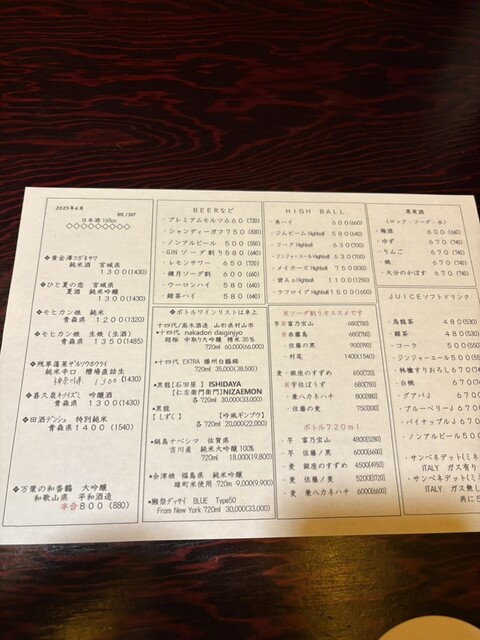 2025年6月
NO.1307
日本酒 160cc
◇◇◇◇◇◇◇◇◇
◆黄金澤コガネサワ
純米酒 宮城県
1300(1430)
◆ひと夏の恋 宮城県
夏酒 純米吟醸
1300(1430)
◆モヒカン娘 純米
青森県 1200(1320)
◆モヒカン娘 生娘(生酒)
青森県 1350(1485)
◆残草蓬莱ザルソウホウライ
純米辛口 槽場直詰生
神奈川県 1300(1430)
◆喜久泉キクイズミ 吟醸酒
青森県 1300(1430)
◆田酒デンシュ 特別純米
青森県 1400 (1540)
◆万葉の和香鶴 大吟醸
和歌山県 平和酒造
半合 800(880)
BEERなど
・プレミアムモルツ 660(730)
・シャンディーガフ 750(830)
・ノンアルビール 500(550)
・GINソーダ割り 580(640)
・レモンサワー 650(720)
・鏡月ソーダ割 600(660)
・ウーロンハイ 580(640)
・緑茶ハイ 580(640)
◆ボトルワインリストは卓上
十四代/高木酒造 山形県村山市
◆十四代 nakadori daiginjyo
超極 中取り大吟醸 精米35%
720ml 60,000(66,000)
◆十四代 EXTRA 播州白鶴錦
720ml 35,000(38,500)
◆黒龍【石田屋】ISHIDAYA
【仁左衛門】NIZAEMON
各720ml 30,000(33,000)
◆黒龍
【しずく】【吟風ギンプウ】
各720ml 20,000(22,000)
◆鍋島ナベシマ 佐賀県
吉川産 純米大吟醸 100%
720ml 18,000(19,800)
◆会津娘 福島県 純米吟醸
雄町米使用 720m 9,000(9,900)
◆獺祭ダッサイ BLUE Type50
From New York 720ml 30,000(33,000)
HIGH BALL
・角ハイ 600(660)
・ジムビームHighball 580(640)
・コークHighball 630(700)
・ジンジャーエールHighball 630(700)
・メイカーズ 750(830)
・碧Ao Highball 1150(1270)
・ラフロイグHighball 1500(1650)
※ソーダ割りオススメです
芋※富乃宝山 680(750)
※赤霧島 680(750)
・佐藤の黒 900(990)
・村尾 1400(1540)
麦・銀座のすずめ 650(720)
※宇佐ぼうず 680(750)
・兼八カネハチ 800(880)
・佐藤の麦 750(830)
ボトル720ml
芋 富乃宝山 4800(5280)
芋 佐藤ノ黒 6000(6600)
麦 銀座のすずめ 4500(4950)
麦 佐藤ノ麦 5200(5720)
麦 兼八カネハチ 6000(6600)
果実酒
(ロック・ソーダ・水)
・梅酒 600(660)
・ゆず 670(740)
・りんご 670(740)
・桃 670(740)
・大分のかぼす 670(740)
JUICEソフトドリンク
・烏龍茶 480(530)
・緑茶 480(530)
・コーラ 500(550)
・ジンジャーエール 500(550)
・林檎すりおろし 670(740)
・白桃 670(740)
・グアバJ 670(740)
・ブルーベリーJ 670(
・パイナップルJ 670(
・ノンアルビール 500(5
・サンベネデット(ミネ
ITALY ガス有り
・サンベネデット(ミネ
ITALY ガス無し
共に5